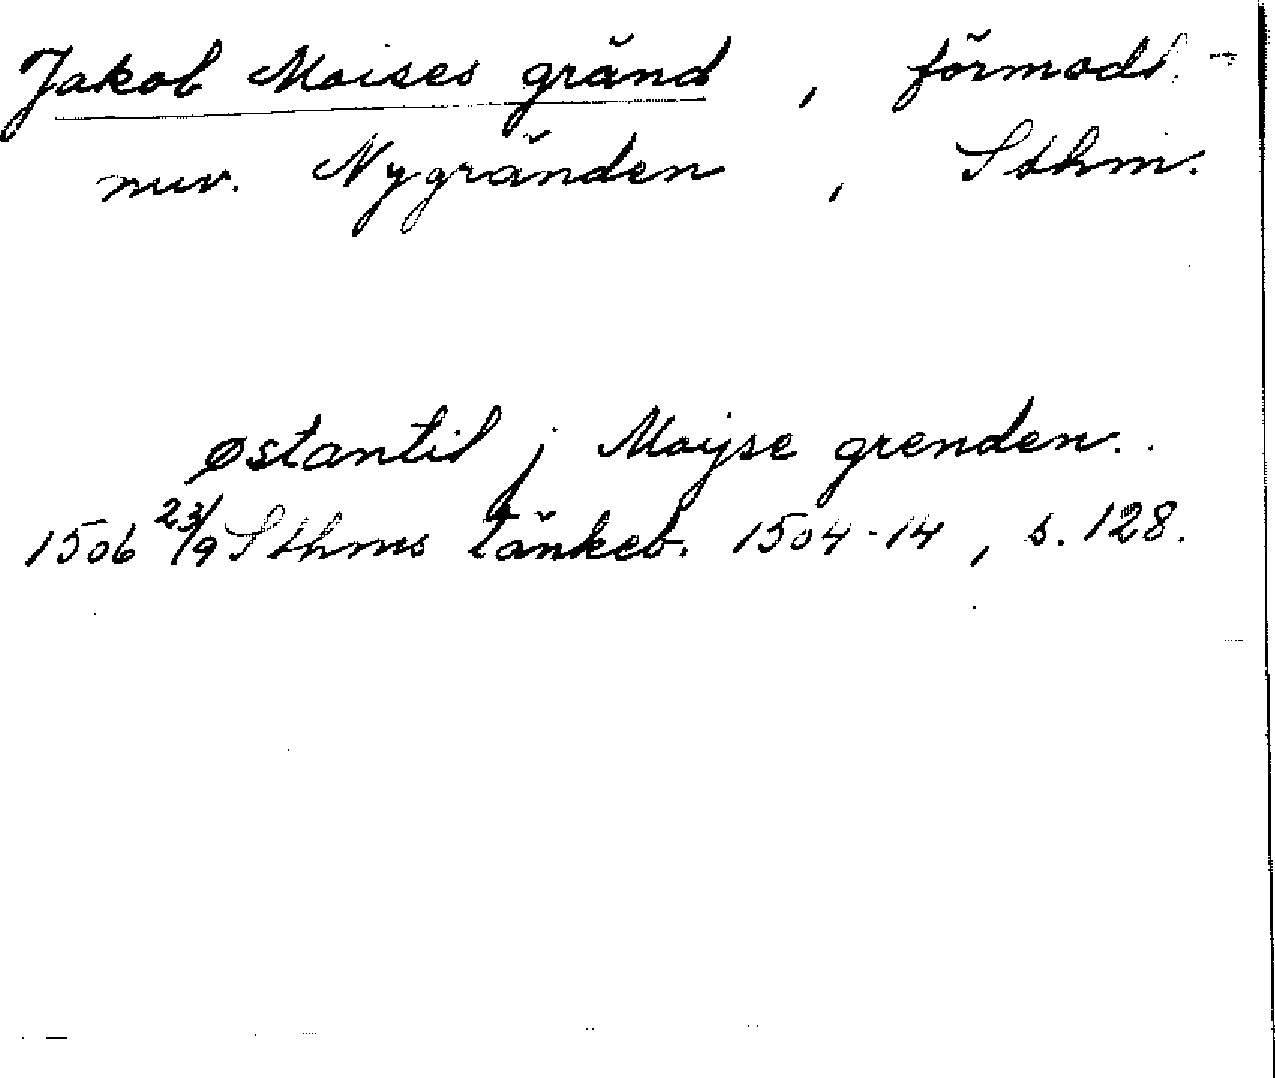 Jakob Moises gränd, förmodl. -
nuv. Nygränden, Sthm.
østantil j Moyse grenden..
1506 23/9 Sthms tänkeb. 1504-14, s. 128.